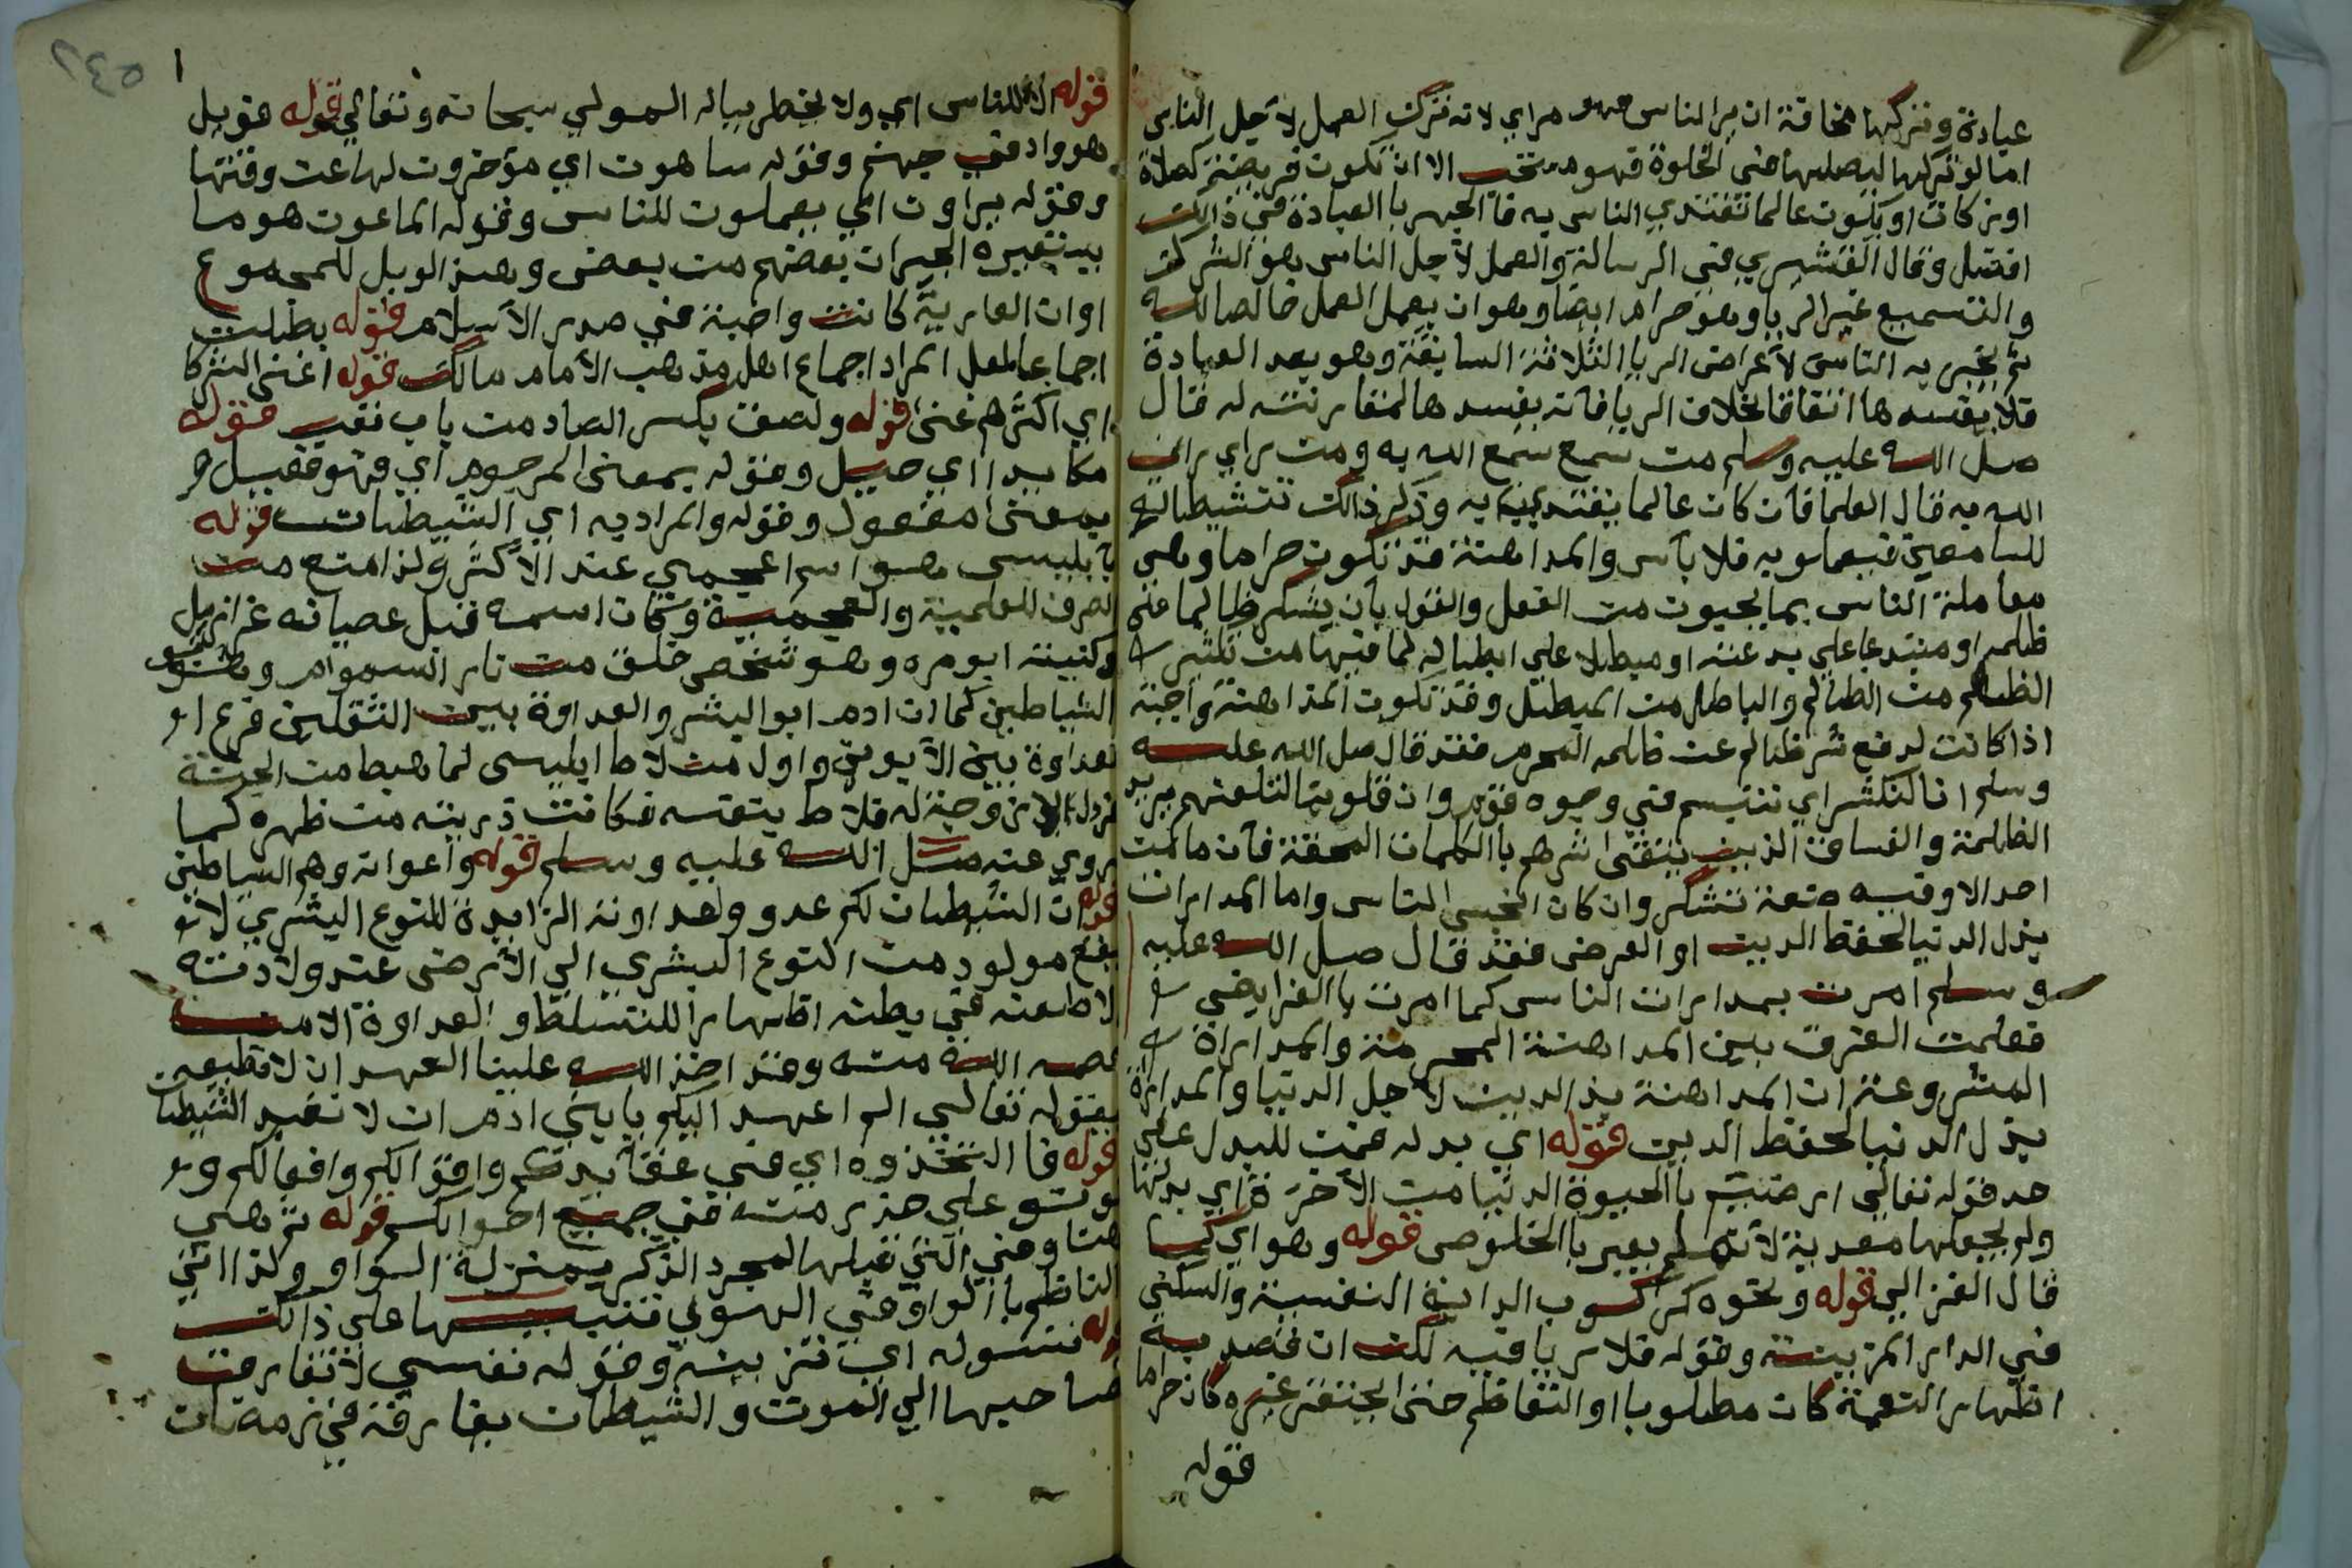 عبادة وتركها مخافة ان يرا الناس فهو مراي لانه ترك العمل لاجل الناس
اما لو تركها ليصليها في الخلوة فهو مستحب الا ان تكون فريضة كصلاة
او زكات او يكون عالما تقتدي الناس به فا الجهر با العبادة في ذالك
افضل وقال القشيري في الرسالة والعمل لاجل الناس هو الشرك
والتسميع غير الريا وهو حرام ايضا وهو ان يعمل العمل خالصا لله
ثم يخبر به الناس لاعراض الريا الثلاثة السابقة وهو بعد العبادة
فلا يفسدها اتفاقا بخلاف الريا فانه يفسدها لمقارنته له قال
صلى الله عليه وسلم من سمع سمع الله به ومن راي راي
الله به قال العلما فان كان عالما يقتدي به وذكر ذالك تنشيطا
للسامعين فيعملو به فلا بأس والمداهنة قد تكون حراما وهي
معاملة الناس بما يحبون من الفعل والقول بان يشكر ظالما في
ظلمه او مبتدعا علي بدعته او مبطلا علي ابطاله لما فيها من تكثير
الظلم من الظالم والباطل من المبطل وقد تكون المداهنة واجبة
اذا كانت لدفع شر ظالم عن المحرم فقد قال صلى الله عليه
وسلم انا لنكشر اي نتبسم في وجوه قوم وان قلوبنا لتلعنهم يريد
الظلمة والفساق الذين يتقى شرهم با الكلمات الحقة فان ما من
احد الا وفيه صفة تشكر وان كان اخس الناس واما المدارات
بذل الدنيا لحفظ الدين او العرض فقد قال صلى الله عليه
وسلم امرت بمدارات الناس كما امرت با الفرايض
فعلمت الفرق بين المداهنة المحرمة والمداراة
المشروعة ان المداهنة بذ الدين لاجل الدنيا والمداراة
بذل الدنيا لحفظ الدين قوله اي بدله فمن للبدل علي
حد قوله تعالى ارضيتم با الحيوة الدنيا من الاخرة اي بدلها
ولم يجعلها معدية لانه لم يعبر با الخلوص قوله وهو اي كسا
قال الغزالي قوله ونحوه كركوب الدابة النفسية والسكنى
في الدار المزينة وقوله فلا ريا فيه لكن ان قصد به
اظهار النعمة كان مطلوبا او التعاظم حتى احتقر غيره كان حراما
قوله
قوله الا للناس اي ولا يخطر بباله المولي سبحانه وتعالي قوله فويل
هو واد في جهنم وقوله ساهون اي مؤخرون لها عن وقتها
وقوله يراون اي يعملون للناس وقوله الماعون هو ما
يستعيره الجيران بعضهم من بعض وهذ الويل للمجموع
او ان العارية كانت واجبة في صدر الاسلام قوله بطلت
اجماعا لعل المراد اجماع اهل مذهب الامام مالك قوله اغنى الشركا
اي اكثرهم غنى قوله ولصق بكسر الصاد من باب تعب قوله
مكايدا اي حيل وقوله بمعنى المرجوم اي فهو فعيل
بمعنى مفعول وقوله والمراد به اي الشيطان قوله
بابليس هو اسم اعجمي عند الاكثر ولذا منع من
الصرف للعلمية والعجمية وكان اسمه قبل عصيانه عزازيل
وكنيته ابو مره وهو شخص خلق من نار السموم وهو ابو
الشياطين كما ان ادم ابو البشر والعداوة بين الثقلين فرع
لعداوة بين الابوين واول من لاط ابليس لما هبط من الجنة
نزل لا زوجة له فلاط بنفسه فكانت ذريته من ظهره كما
روي عنه صلى الله عليه وسلم قوله واعوانه وهم الشياطين
قوله ان الشيطان لكم عدو وعداوته الزايدة للنوع البشري لانه
يقع مولود من النوع البشري الي الارض عند ولادته
الا طعنه في بطنه اظهارا للتسلط والعداوة الا من
عصمه الله منه وقد اخذ الله علينا العهد ان لا نطيعه
بقوله تعالي الم اعهد اليكم يا بني ادم ان لا تعبد الشيطان
قوله فا اتخذوه اي في عقايدكم واقوالكم وافعالكم
كونو علي حذر منه في جميع احوالكم قوله ثم هي
هنا وفي التي قبلها لمجرد الذكر بمنزلة الواو ولذا اتي
الناظم با الواو في الهوي تنبيها علي ذالك
قوله تسوله اي تزينه وقوله نفسي لا تفارق
صاحبها الي الموت والشيطان يفارقه في رمضان